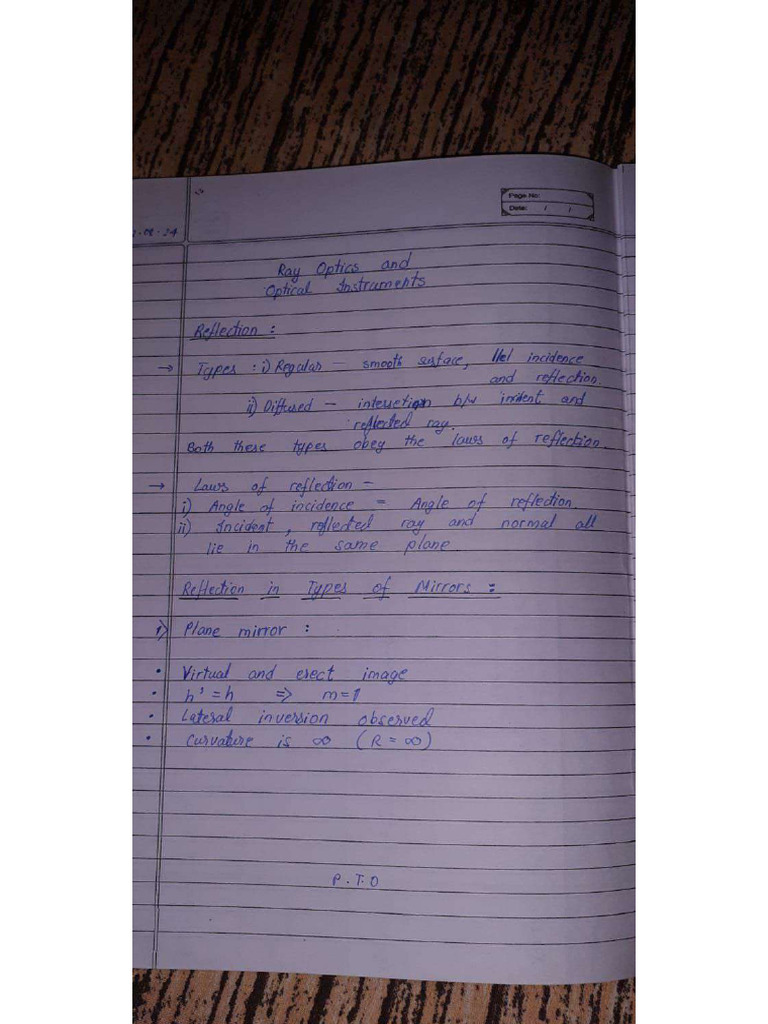 Page No:
Date: / /
08.24
Ray Optics and
Optical Instruments
Reflection :
→ Types : i) Regular — smooth surface, llel incidence
and reflection
ii) Diffused — intersection b/w incident and
reflected ray.
Both these types obey the laws of reflection.
→ Laws of reflection —
i) Angle of incidence = Angle of reflection.
ii) Incident, reflected ray and normal all
lie in the same plane
Reflection in Types of Mirrors :
1) Plane mirror :
• Virtual and erect image
• h' = h ⇒ m = 1
• Lateral inversion observed
• Curvature is ∞ (R = ∞)
P.T.O